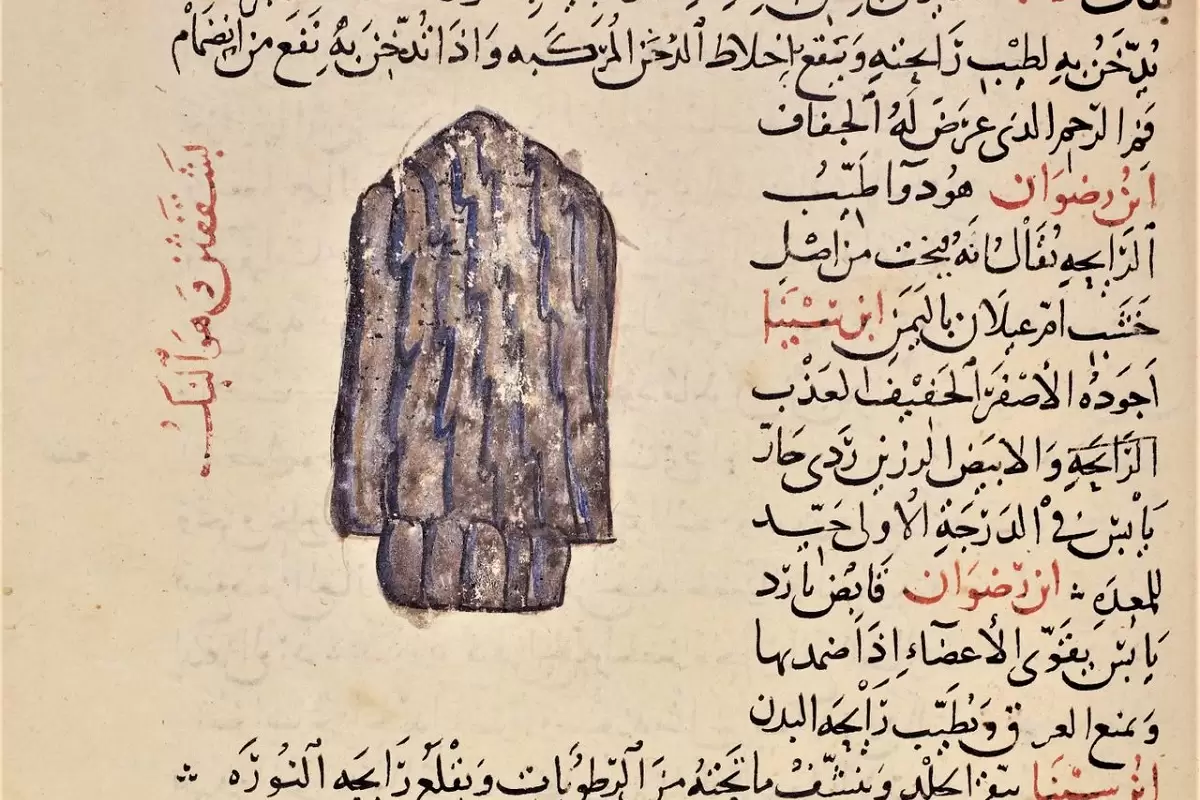 يُدّخَّنُ به لطِيْبِ رَايحته وَيَقع باخلاط الدُخَن المُرَكَبه وَاذَا تُدُخّن بهْ نَفَع من انضمام
فَمِ الرَّحمِ الذى عرَضَ لَهُ الجفاف
ابنُ رضوَان هودوآ طيّبُ
الرَايحهِ يُقَالُ انهُ ينحت من اصْلِ
خَشَب امّ غيلان باليَمَن ابن سيْنَا
اَجوَدُه الأصْفَرُ الخَفيْف العَذْب
الرَايحَة وَالابيَض الرزين رَدى حَارّ
يَابسْ فى الدَرَجَةِ الاولى جَيّد
للمَعِدَهِ ابن رضوَان قابُض بَارَد
يَابسْ يقَوّى الأعضاءِ اِذَا ضمد بها
وَيمنع العرق وَيُطَيّب رَايحَه البدن
ابنُ سيْنَا الجلْد وَينشّفُ ما تحْتهُ منَ الرطوُبات وَيقْلَعُ رَايحه النوُرَه
وَهوَ البُنكُ